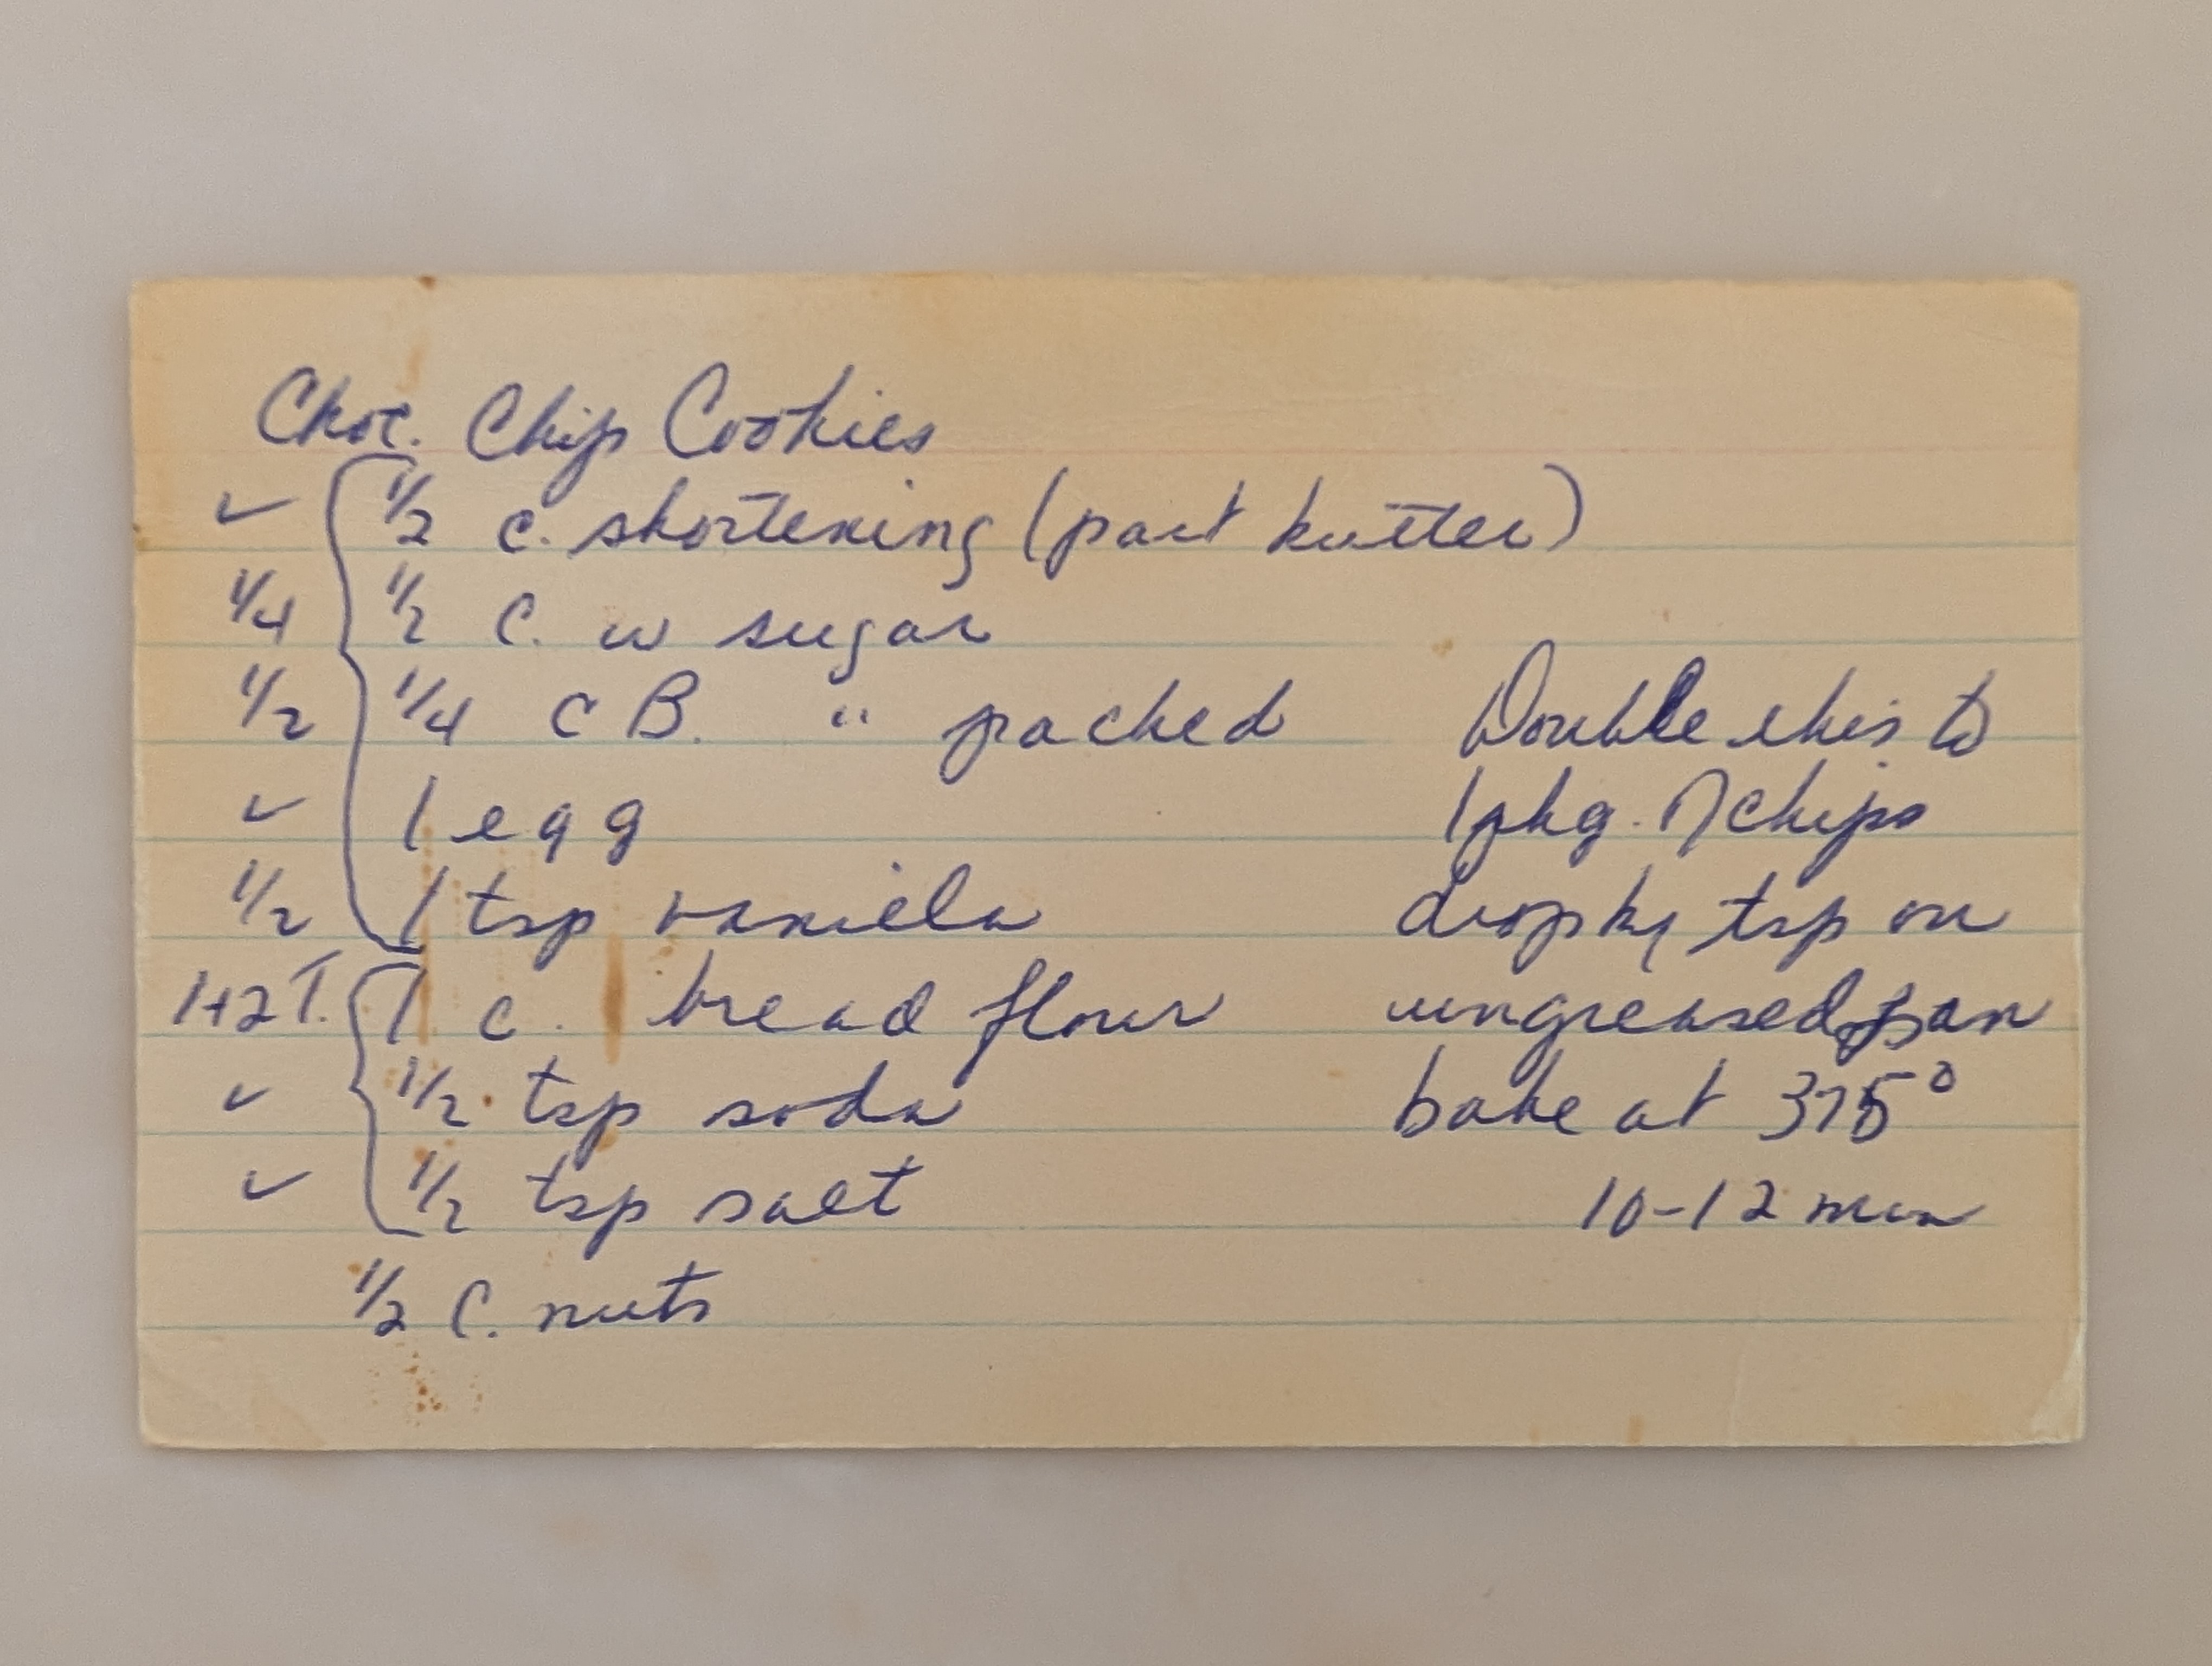 Choc. Chip Cookies
✓ 1/2 c. shortening (part butter)
1/4 1/2 C. w sugar
1/2 1/4 c B. " packed
✓ 1 egg
1/2 1 tsp vaniela
1+2T. 1 c. bread flour
✓ 1/2 tsp soda
✓ 1/2 tsp salt
1/2 C. nuts
Double this to
1 pkg. of chips
drop by tsp on
ungreased pan
bake at 375°
10-12 min